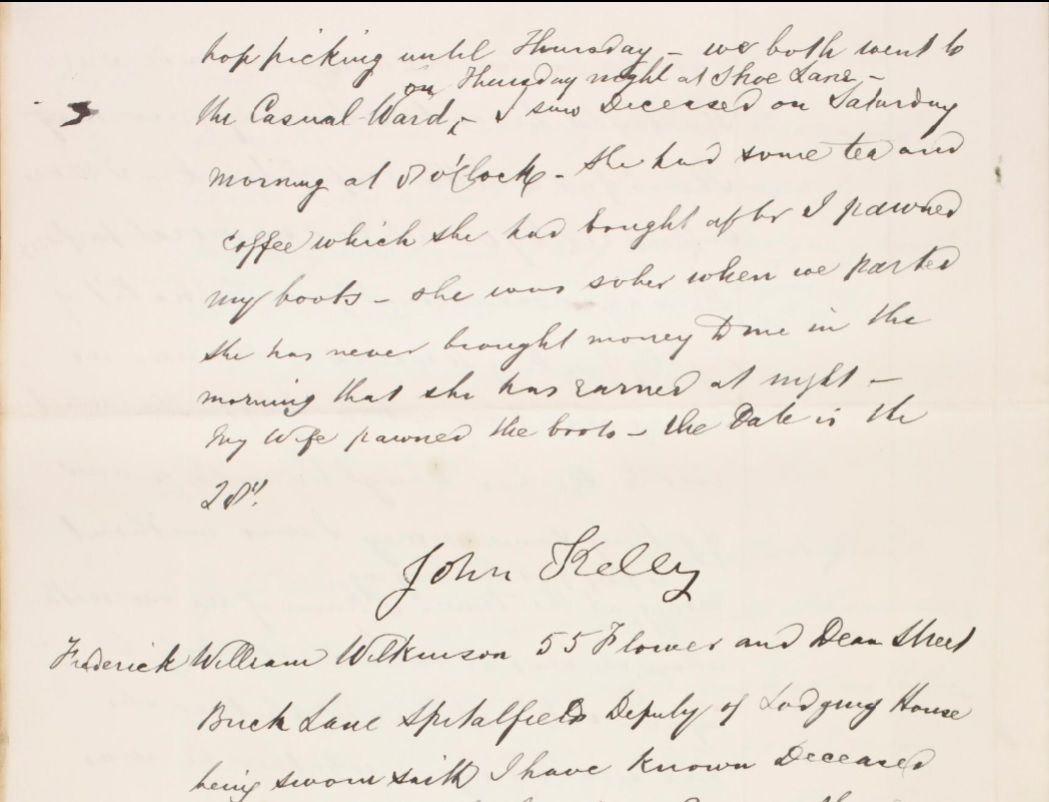 hop picking until Thursday – we both went to
on Thursday night at Shoe Lane –
the Casual Ward, – I saw Deceased on Saturday
morning at 8 o'Clock – She had some tea and
coffee which she had bought after I pawned
my boots – she was sober when we parted
She has never brought money to me in the
morning that she has earned at night –
My Wife pawned the boots – the Date is the
28"
John Kelly
Frederick William Wilkinson 55 Flower and Dean Street
Brick Lane Spitalfields Deputy of Lodging House
being sworn saith I have known Deceased